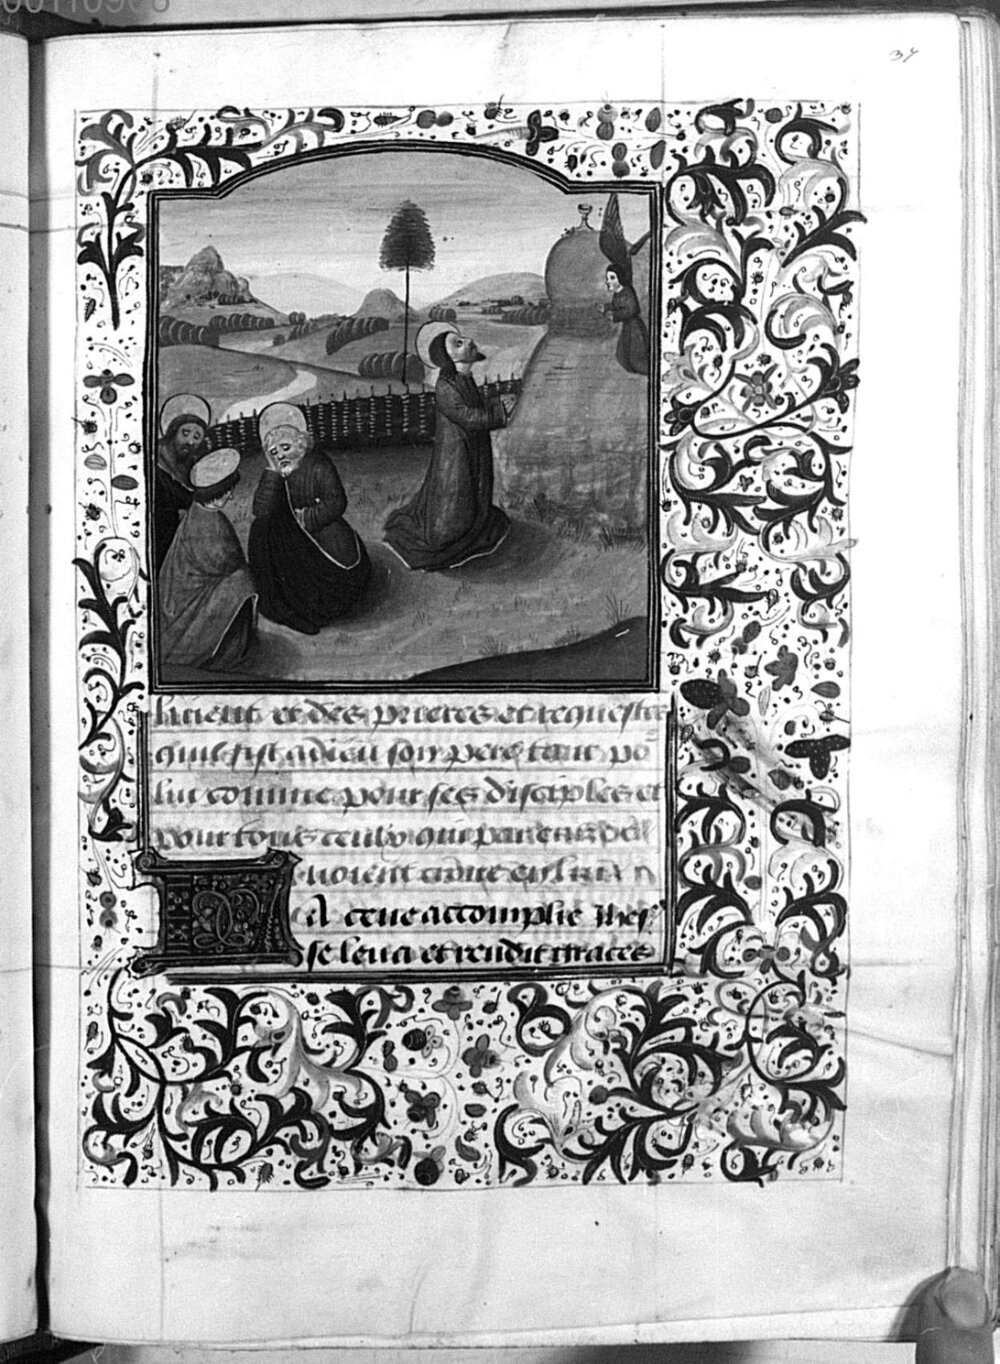 37
et des prieres et requestes
quil fist a dieu son pere tant po
lui comme pour ses disciples et
pour tous ceulx qui par
croire en lui
a ceue accomplie Jhes
se leua et rendit graces